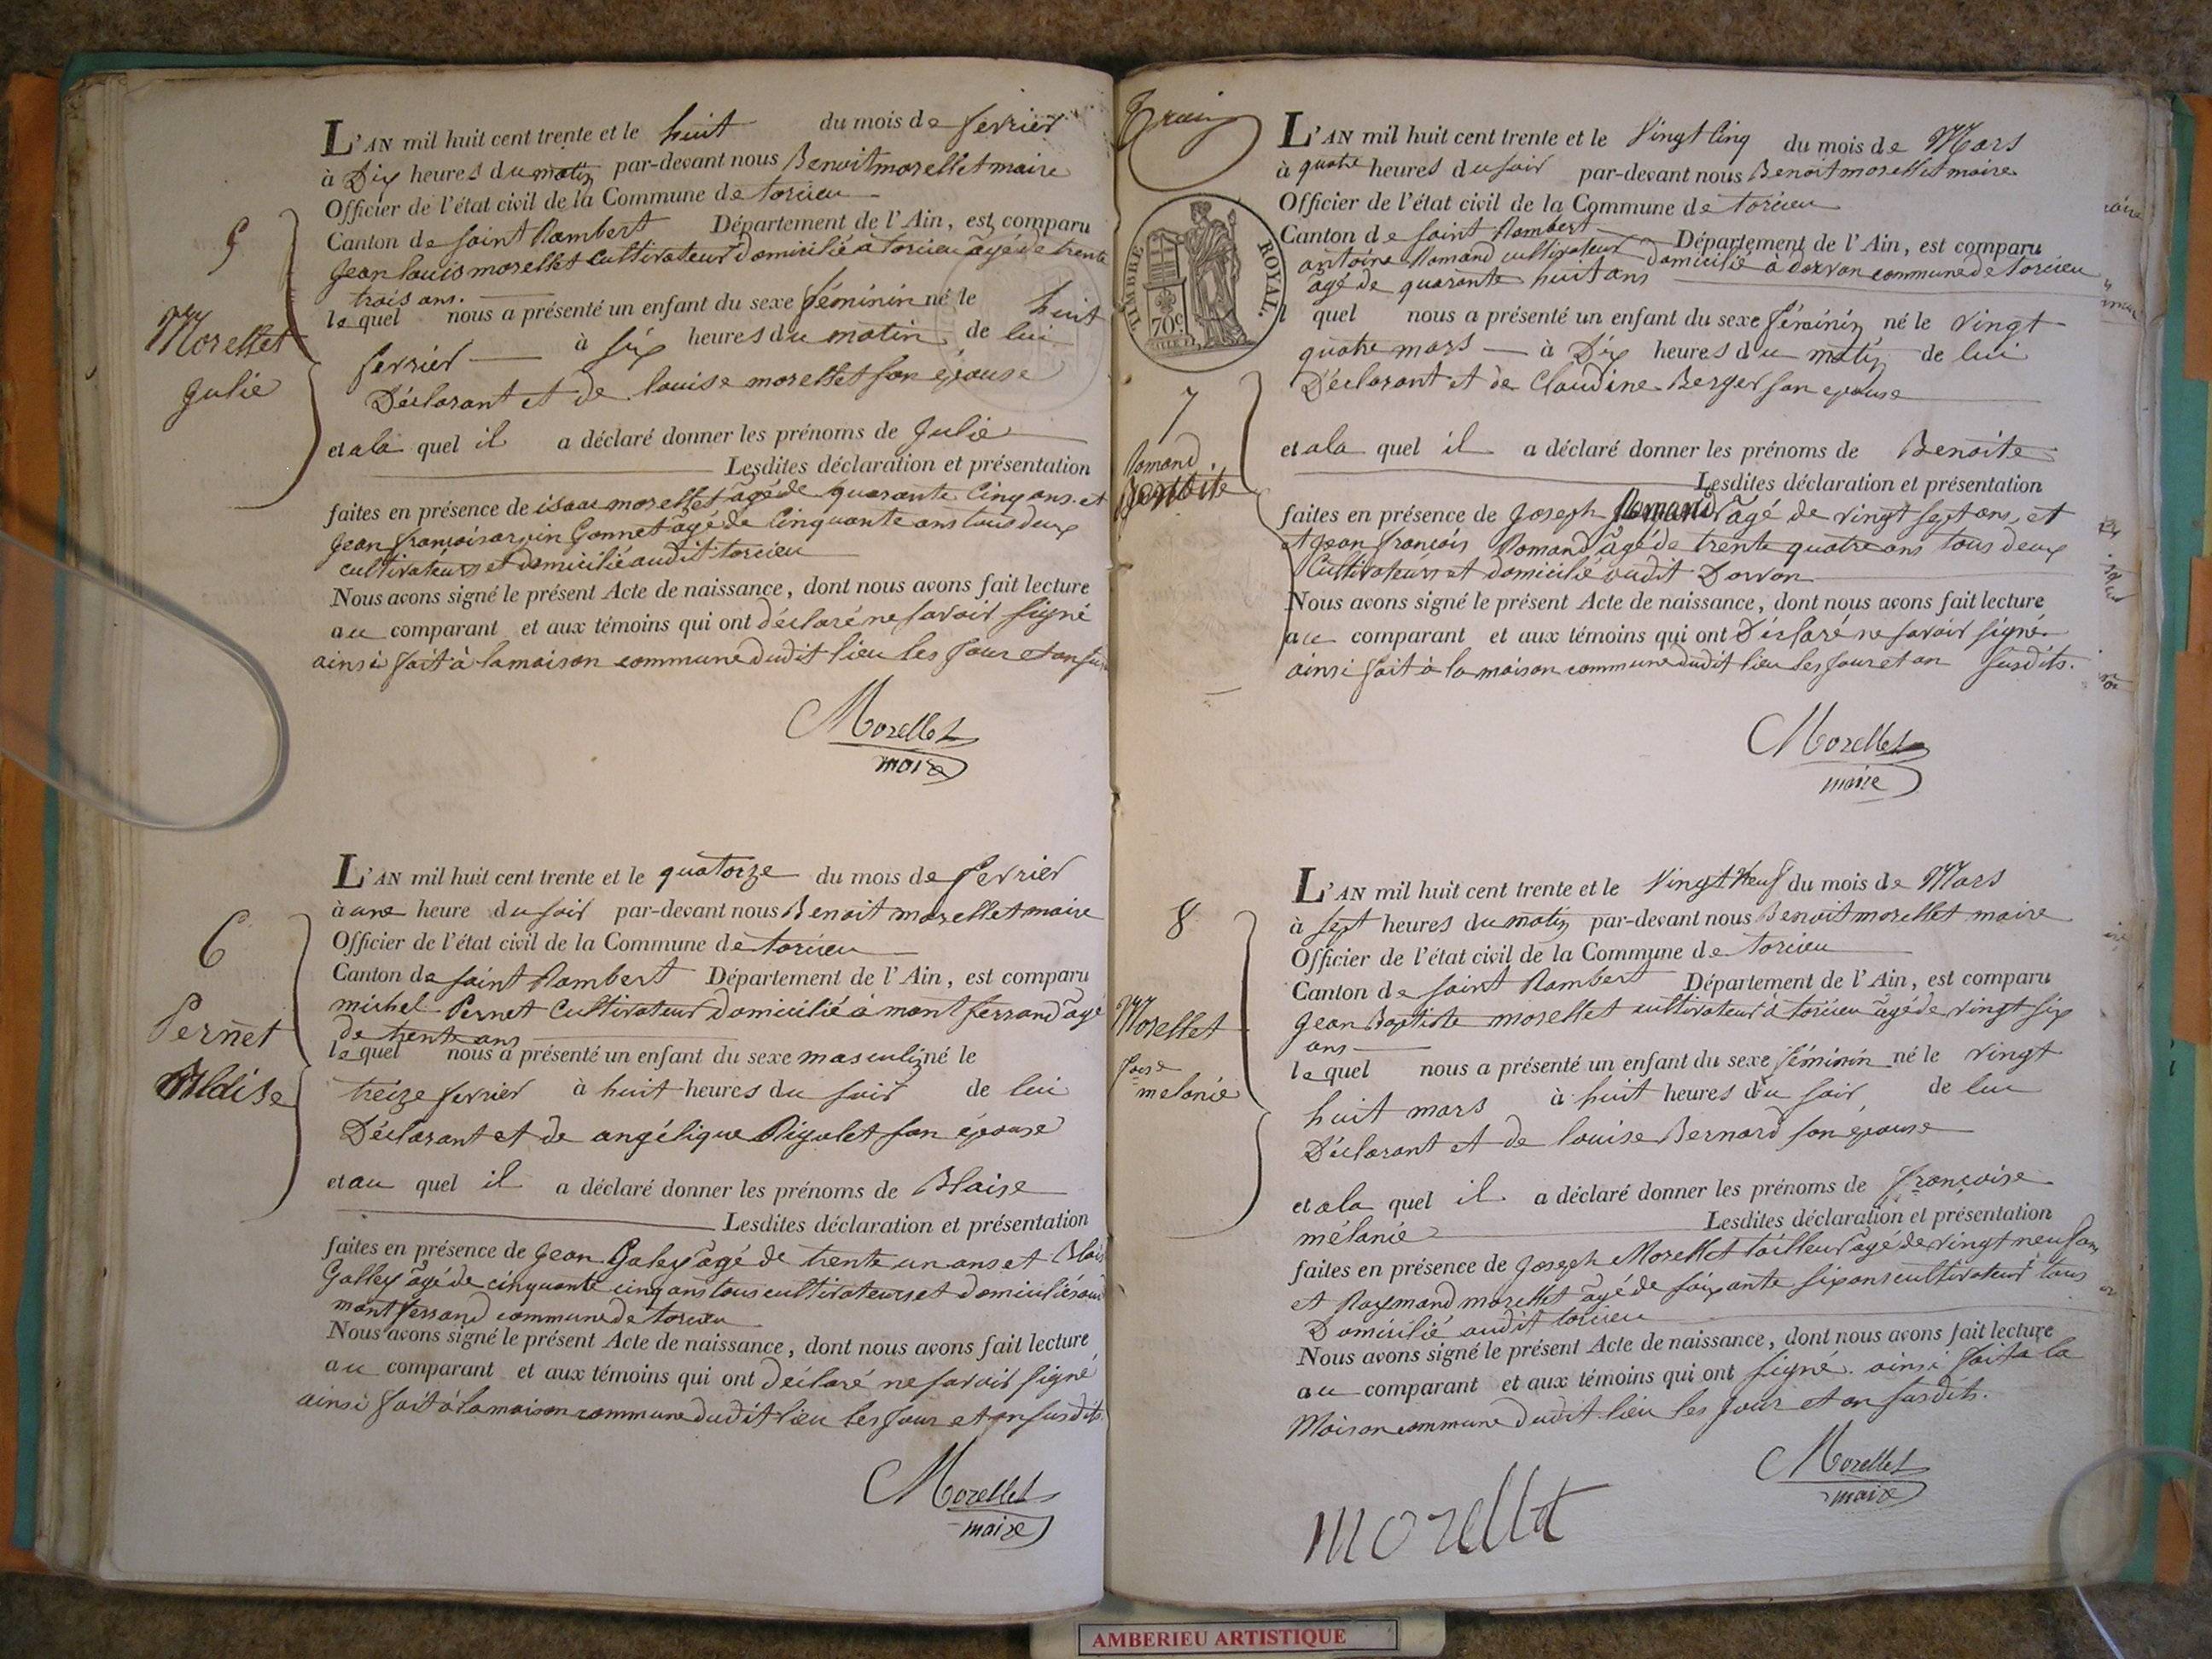 5
Morellet
Julie
L'AN mil huit cent trente et le huit du mois de fevrier
à Dix heures du matin par-devant nous Benoit morellet maire
Officier de l'état civil de la Commune de torcieu
Canton de saint Rambert Département de l'Ain, est comparu
Jean louis morellet cultivateur domicilié à torcieu agé de trente
trois ans.
lequel nous a présenté un enfant du sexe féminin né le huit
fevrier à six heures du matin de lui
Déclarant et de louise morellet son épouse
et a la quel il a déclaré donner les prénoms de Julie
Lesdites déclaration et présentation
faites en présence de isaac morellet agé de quarante cinq ans et
Jean françois Gonnet agé de cinquante ans tous deux
cultivateurs et domicilié audit torcieu
Nous avons signé le présent Acte de naissance, dont nous avons fait lecture
au comparant et aux témoins qui ont déclaré ne savoir signé
ainsi fait à la maison commune dudit lieu les jour et an
Morellet
maire
6
Pernet
Blaise
L'AN mil huit cent trente et le quatorze du mois de fevrier
à une heure du soir par-devant nous Benoit morellet maire
Officier de l'état civil de la Commune de torcieu
Canton de saint Rambert Département de l'Ain, est comparu
michel Pernet cultivateur domicilié à mont ferrand agé
de trente ans
lequel nous a présenté un enfant du sexe masculin né le
treize fevrier à huit heures du soir de lui
Déclarant et de angélique Rigolet son épouse
et au quel il a déclaré donner les prénoms de Blaise
Lesdites déclaration et présentation
faites en présence de Jean Galey agé de trente un ans et Blais
Galley agé de cinquante cinq ans tous cultivateurs et domiciliés
mont ferrand commune de torcieu
Nous avons signé le présent Acte de naissance, dont nous avons fait lecture
au comparant et aux témoins qui ont déclaré ne savoir signé
ainsi fait à la maison commune dudit lieu les jour et an susdits.
Morellet
maire
TIMBRE ROYAL.
70c
7
Romand
Benoite
L'AN mil huit cent trente et le vingt cinq du mois de Mars
à quatre heures du soir par-devant nous Benoit morellet maire
Officier de l'état civil de la Commune de torcieu
Canton de saint Rambert Département de l'Ain, est comparu
antoine Romand cultivateur domicilié à dorvan commune de torcieu
agé de quarante huit ans
quel nous a présenté un enfant du sexe féminin né le vingt
quatre mars à Dix heures du matin de lui
Déclarant et de Claudine Berger son epouse
et a la quel il a déclaré donner les prénoms de Benoite
Lesdites déclaration et présentation
faites en présence de Joseph Romand agé de vingt sept ans, et
et Jean françois Romand agé de trente quatre ans tous deux
Cultivateurs et domicilié audit Dorvan
Nous avons signé le présent Acte de naissance, dont nous avons fait lecture
au comparant et aux témoins qui ont Déclaré ne savoir signé.
ainsi fait à la maison commune dudit lieu les jour et an susdits.
Morellet
maire
8
Morellet
melanie
L'AN mil huit cent trente et le vingt neuf du mois de Mars
à sept heures du matin par-devant nous Benoit morellet maire
Officier de l'état civil de la Commune de torcieu
Canton de saint Rambert Département de l'Ain, est comparu
Jean Baptiste morellet cultivateur à torcieu agé de vingt six
ans
lequel nous a présenté un enfant du sexe féminin né le vingt
huit mars à huit heures du soir de lui
Déclarant et de louise Bernard son épouse
et a la quel il a déclaré donner les prénoms de françoise
mélanie Lesdites déclaration et présentation
faites en présence de Joseph Morellet tailleur agé de vingt neuf ans
et Raymond morellet agé de soixante six ans cultivateur tous
Domicilié audit torcieu
Nous avons signé le présent Acte de naissance, dont nous avons fait lecture
au comparant et aux témoins qui ont signé. ainsi fait a la
Maison commune dudit lieu les jour et an susdits.
Morellet
maire
morellet
AMBERIEU ARTISTIQUE